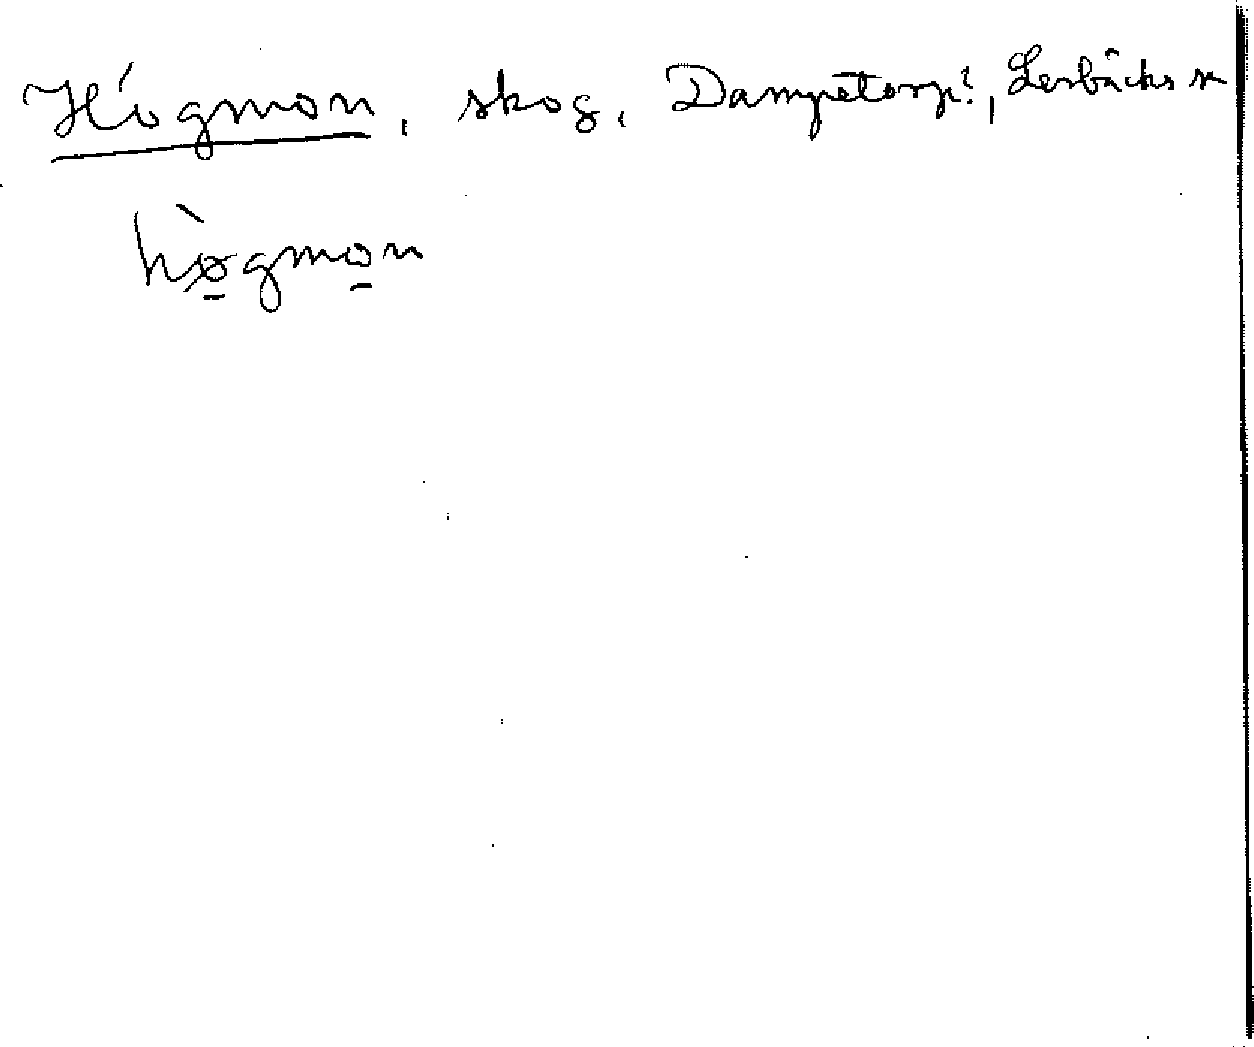 Högmon, skog, Dampetorp?, Lerbäcks sn
hø̀gmon